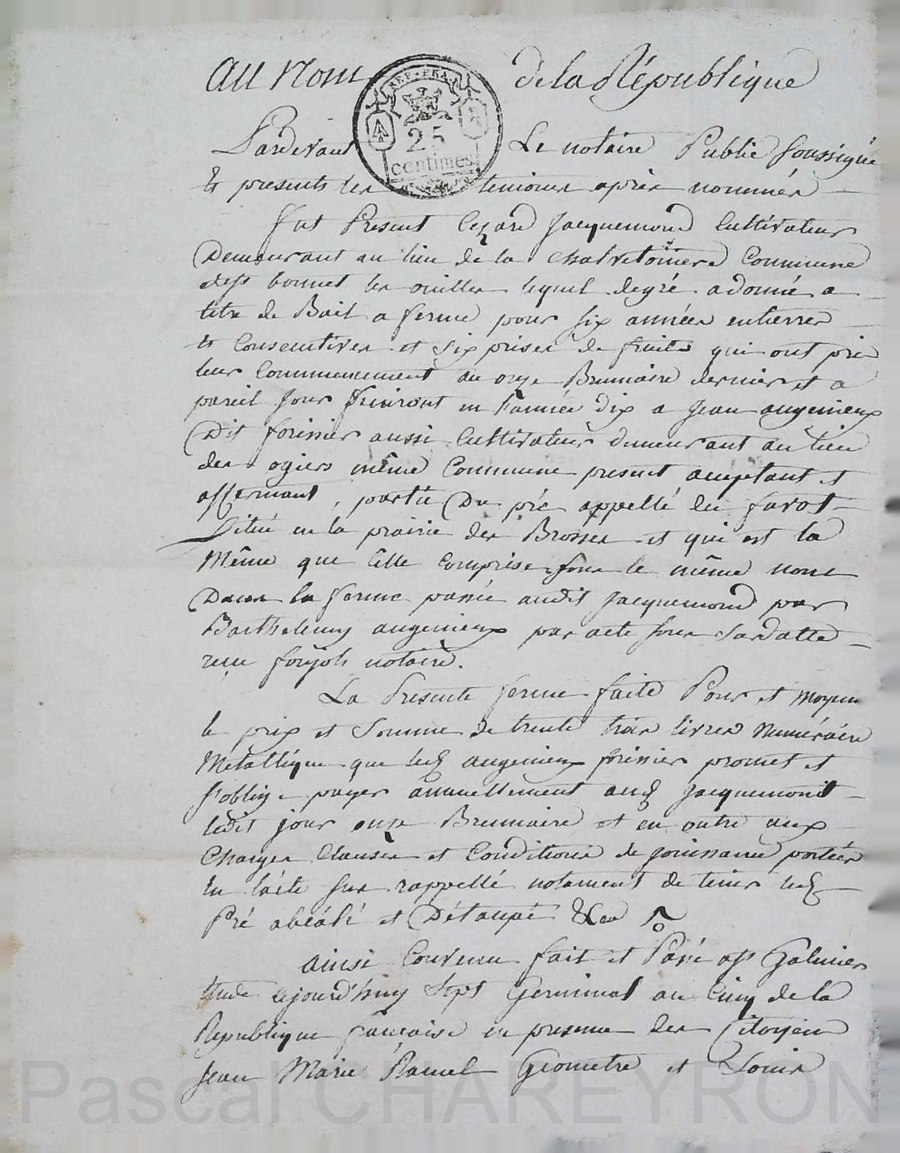 Au Nom de la République
REP. FRA.
25
centimes
Pardevant Le notaire Public soussigné
Et presents les temoins après nommés
fut Present Cezard Jacquemond Cultivateur
Demeurant au lieu de la Chalvetonnere Commune
de St bonnet les ouilles lequel degré a donné a
titre de Bail a ferme pour six années entierres
et Consecutives et six prises de fruits qui ont pris
leur Commencement au onze Brumaire dernier et a
pareil Jour finiront en l'année dix a Jean augenieux
Dit forissier aussi Cultivateur demeurant au lieu
des ogiers même Commune present acceptant et
affermant, partie Du pré appellé du favot
Situé en la prairie des Brosses et qui est la
Même que celle comprise sous le même nom
Dans la ferme passée audit Jacquemond par
Barthelemy augenieux par acte sous sa datte
reçu foujols notaire.
La Presente ferme faite Pour et moyen
le prix et Somme de trente trois livres Numéraire
Metallique que led augenieux forissier promet et
s'oblige payer annuellement aud Jacquemond
ledit jour onze Brumaire et en outre aux
Charges Clauses et Conditions de jouissance portées
En l'acte sus rappellé notament de tenir led
Pré abéalé et Détaupé &ca
ainsi Convenu fait et Passé a St Galmier
Etude cejourd'huy Sept Germinal an Cinq de la
Republique francaise en presence des Citoyens
Jean Marie Ramel Geometre et Louis
Pascal CHAREYRON